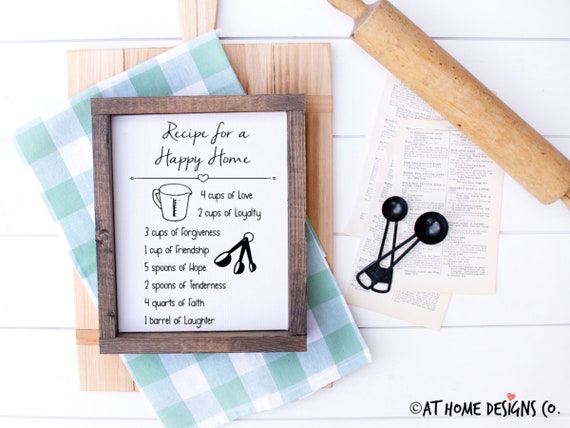 Recipe for a
Happy Home
4 cups of Love
2 cups of Loyalty
3 cups of Forgiveness
1 cup of Friendship
5 spoons of Hope
2 spoons of Tenderness
4 quarts of Faith
1 barrel of Laughter
©AT HOME DESIGNS CO.